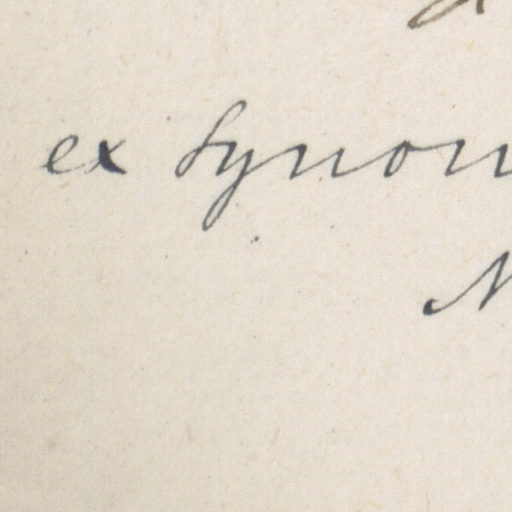 ex synon